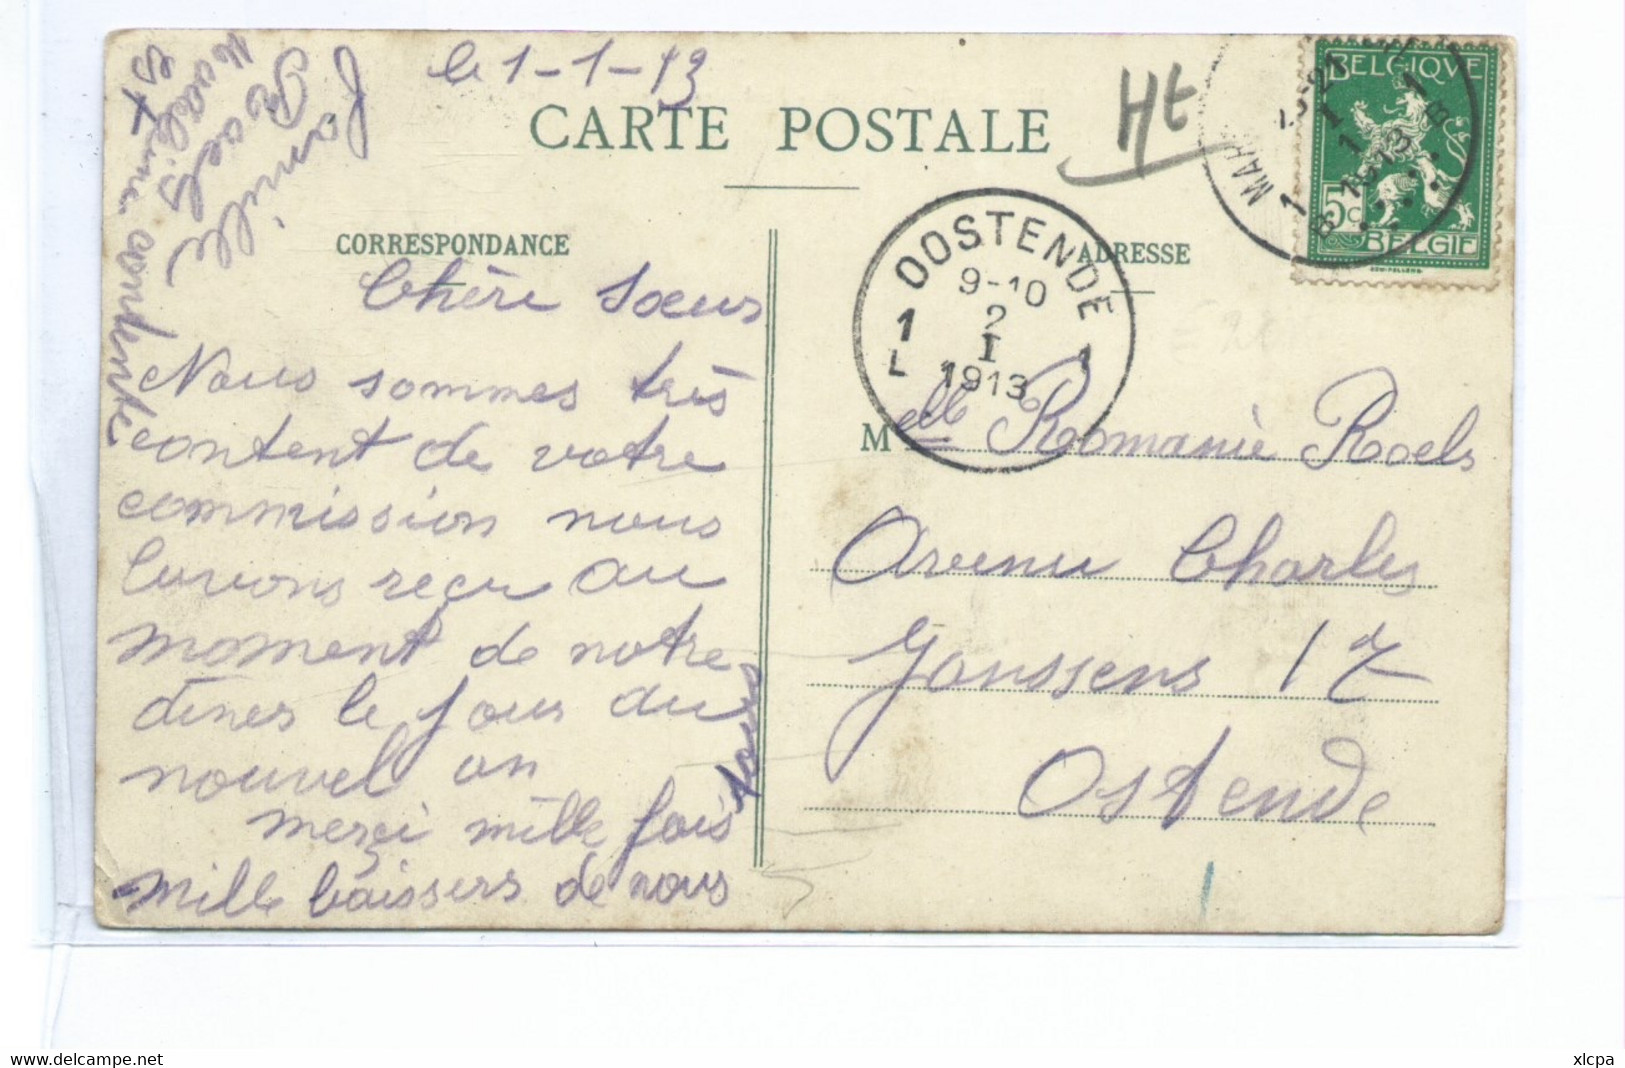 le 1-1-13
CARTE POSTALE
Ht
BELGIQVE
5c
BELGIE
MAR
1 1
B 1913 B
CORRESPONDANCE
ADRESSE
OOSTENDE
9-10
2
I
1913
1 L 1
Chère Soeur
Nous sommes très
content de votre
commission nous
lavions reçu au
moment de notre
dines le jour du
nouvel an
merci mille fois
mille baissers de nous
tous
famille
Roels
est
contente
Melle Romanie Roels
Avenu Charles
Janssens 17
Ostende
xlcpa